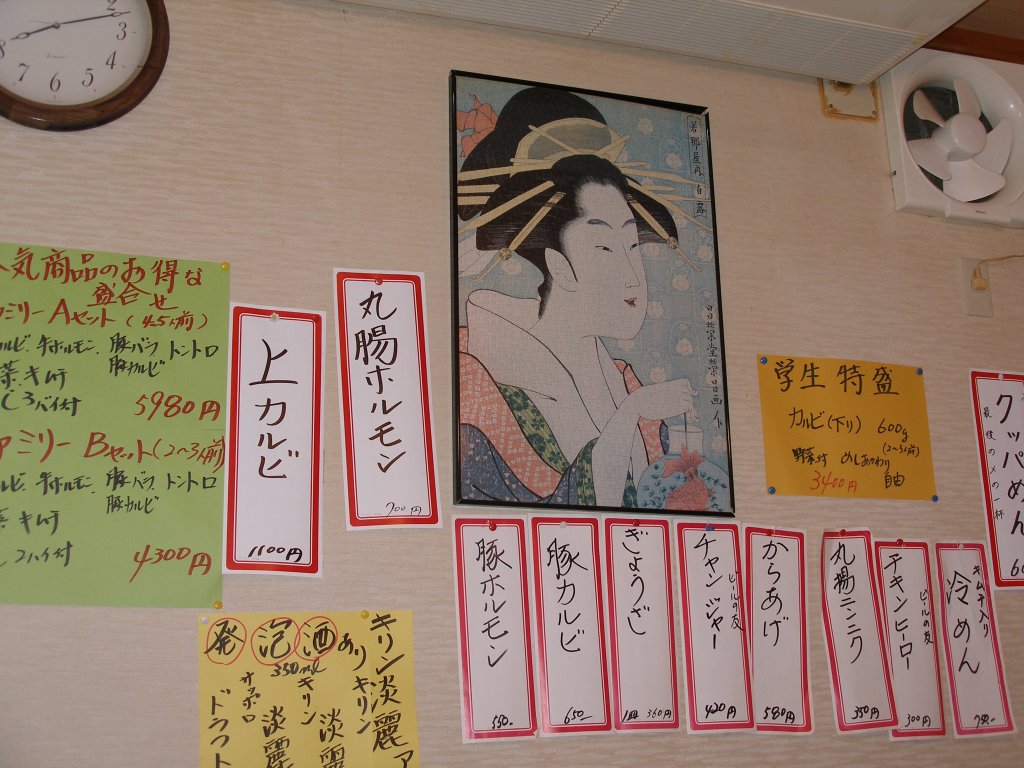 2
3
4
5
6
7
8
人気商品のお得な
盛合せ
ァミリーAセット(4~5人前)
カルビ、牛ホルモン、豚バラ トントロ
豚カルビ
菜 キムチ
めし3バイ付
5980円
ァミリーBセット(2~3人前)
ルビ、牛ホルモン、豚バラ トントロ
豚カルビ
菜 キムチ
し2ハイ付
4300円
上カルビ
1100円
丸腸ホルモン
700円
若那屋内 白露
学生 特盛
カルビ(下り) 600g
(2~3人前)
野菜付 めしおかわり
自由
3400円
クッパめん
最後の〆の一杯
豚ホルモン
550-
豚カルビ
650-
ぎょうざ
1皿 360円
チャンジャー
ビールの友
420円
からあげ
580円
丸揚ニンニク
350円
チキンピーロー
ビールの友
300円
キムチ入り
冷めん
780-
発泡酒あり
350ml
キリン淡麗
キリン
淡麗
サッポロ
ドラフト